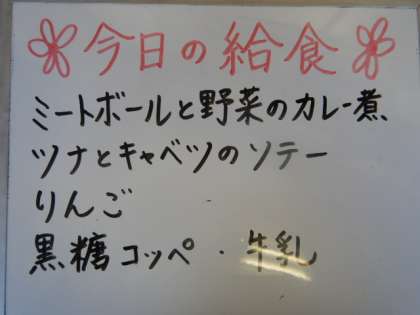 今日の給食
ミートボールと野菜のカレー煮
ツナとキャベツのソテー
りんご
黒糖コッペ・牛乳